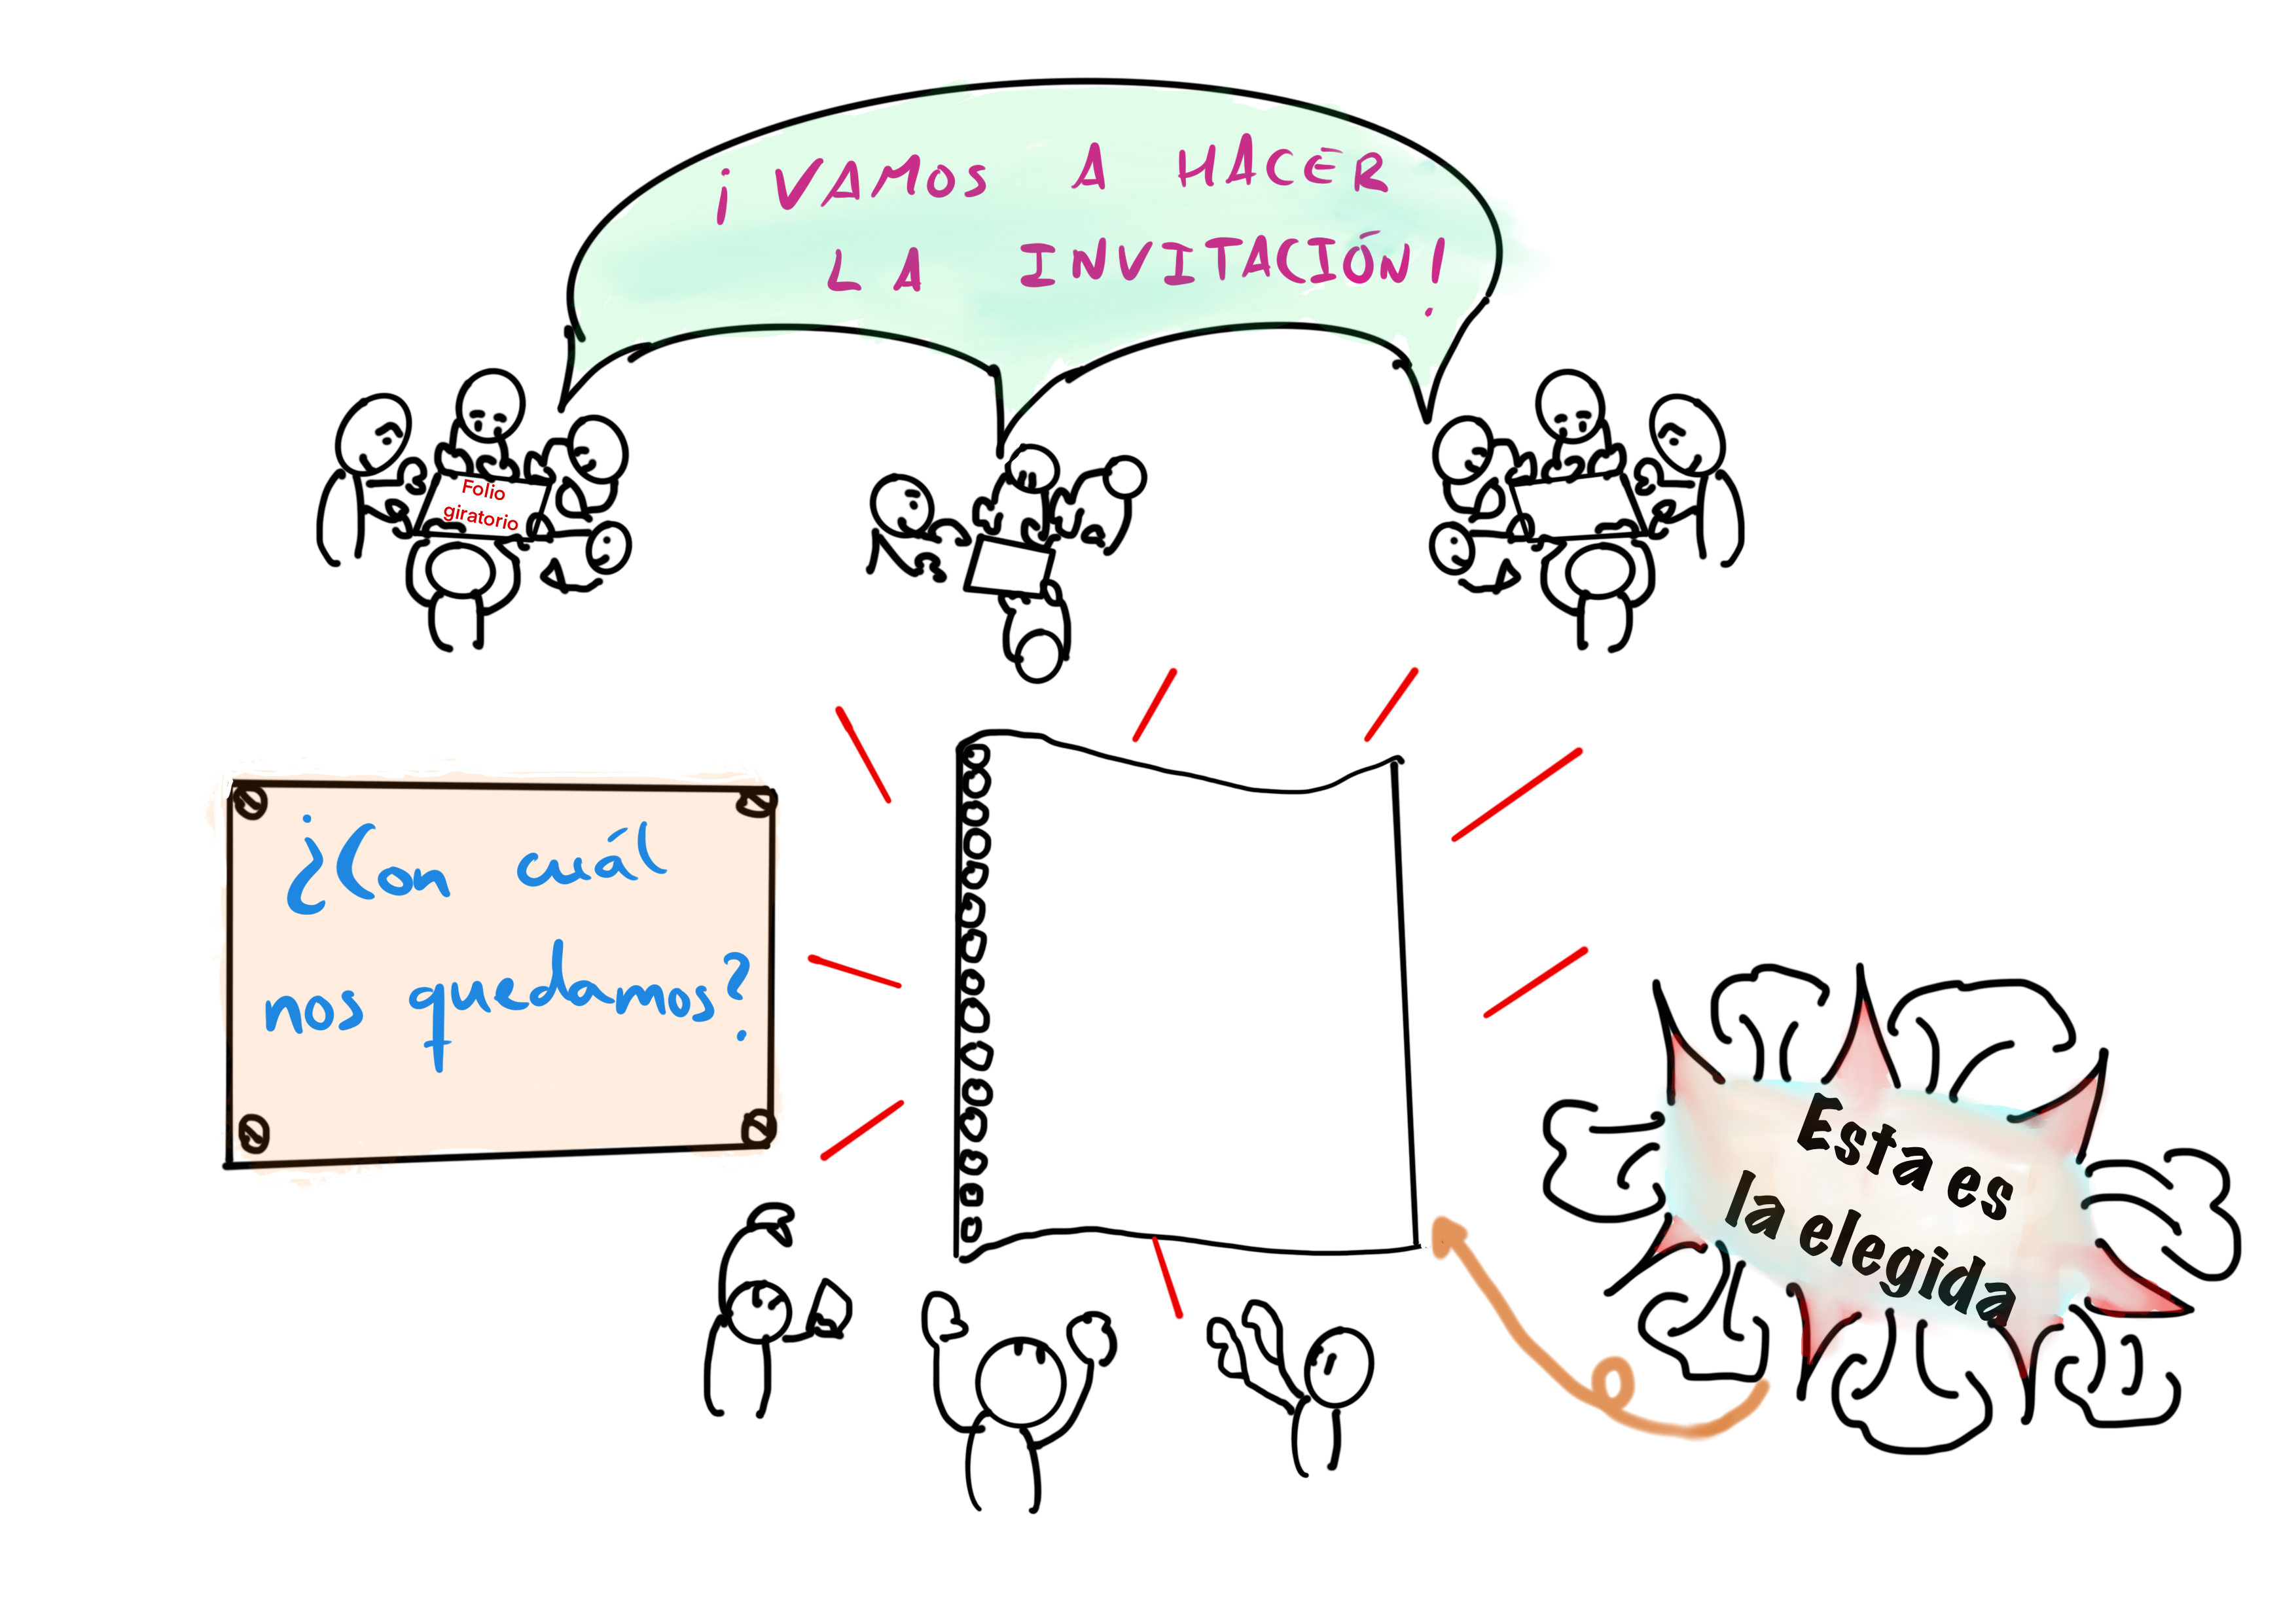 ¡VAMOS A HACER
LA INVITACIÓN!
Folio
giratorio
¿Con cuál
nos quedamos?
Esta es
la elegida